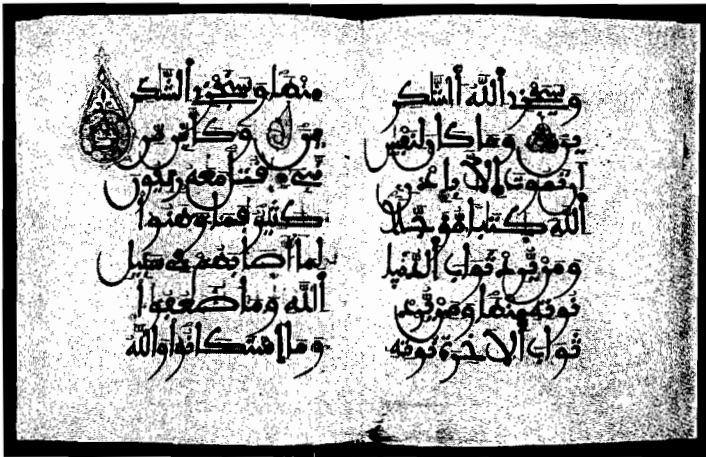 وسيجزى الله الشكر
ين وما كان لنفس
أن تموت إلا بإذن
الله كتابا مؤجلا
ومن يرد ثواب الدنيا
نوته منها ومن يرد
ثواب الاخرة نوته
منها وسنجزى الشكر
ين وكأين من
نبىء قتل معه ربيون
كثير فما وهنوا
لما أصابهم فى سبيل
الله وما ضعفوا
وما استكانوا والله